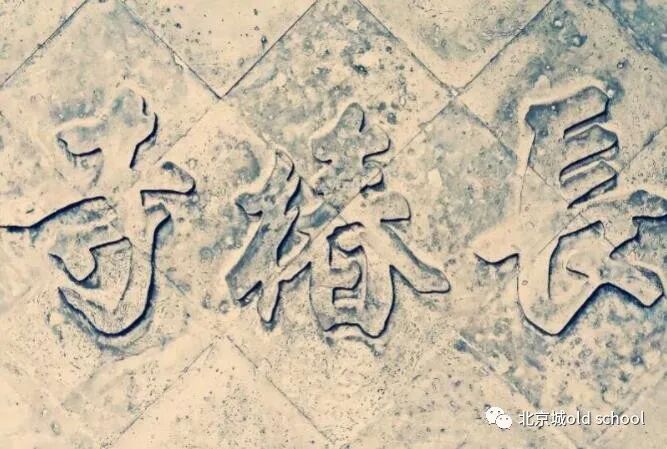 長椿寺
北京城old school